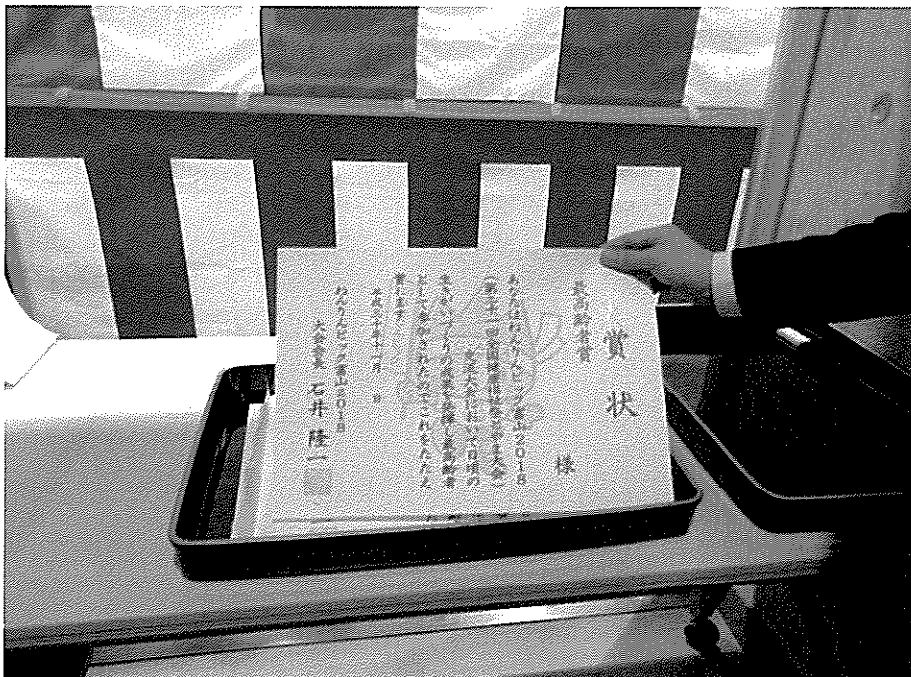 賞状
最高齢者賞
様
あなたはねんりんピック富山2018
(第三十一回全国健康福祉祭とやま大会)
大会において日頃の
として参加されたのでこれをたたえ
賞します
平成三十年十一月 日
ねんりんピック富山2018
大会会長 石井隆一